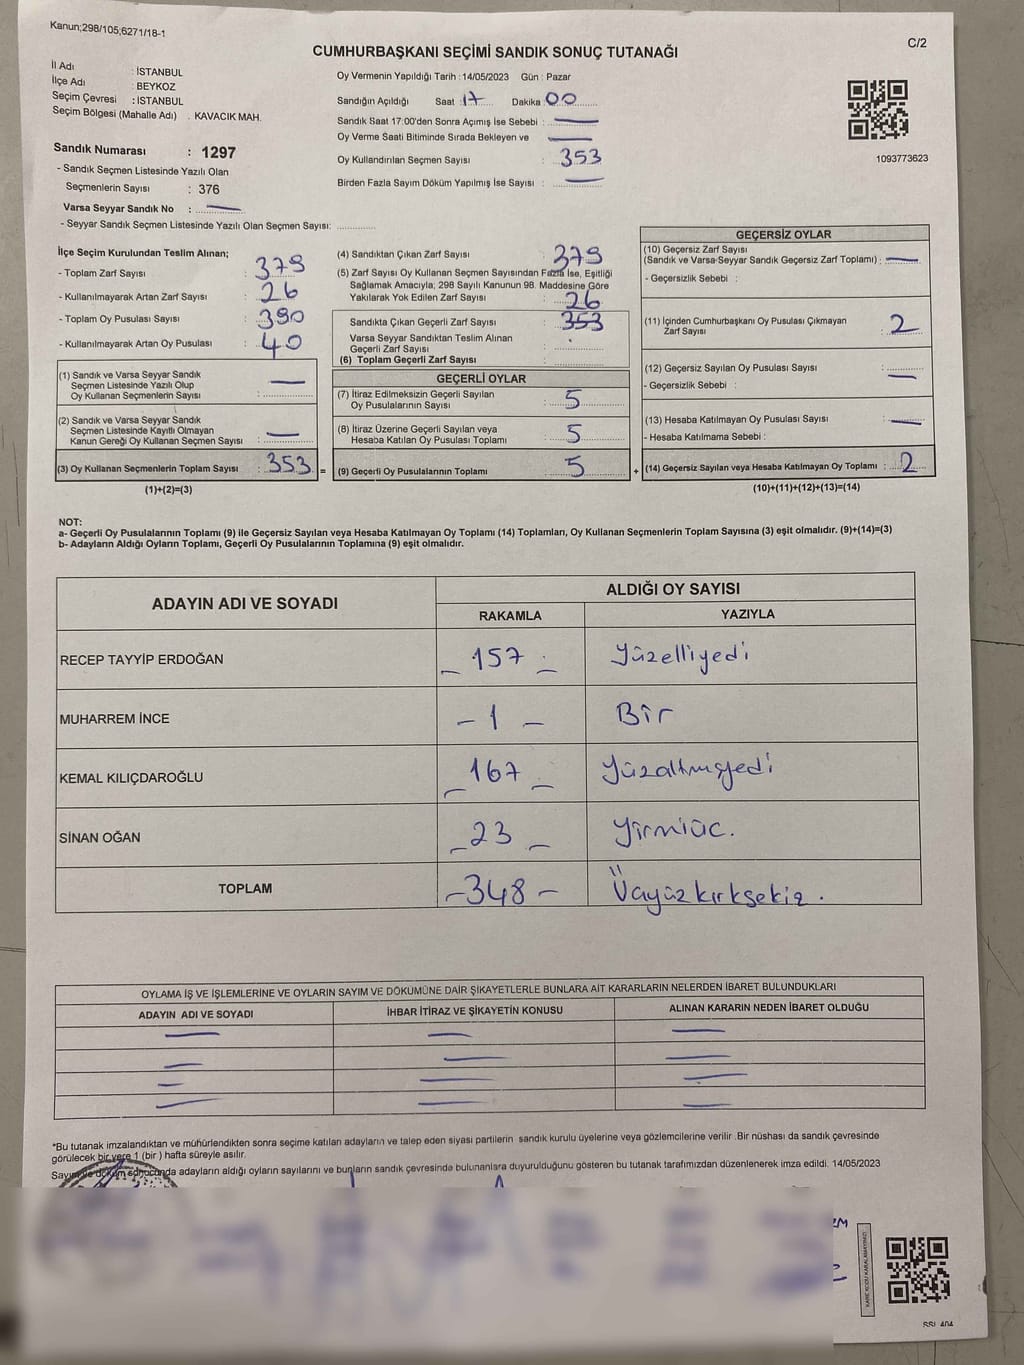 Kanun;298/105;6271/18-1
C/2
CUMHURBAŞKANI SEÇİMİ SANDIK SONUÇ TUTANAĞI
İl Adı : İSTANBUL
İlçe Adı : BEYKOZ
Seçim Çevresi : İSTANBUL
Seçim Bölgesi (Mahalle Adı) . KAVACIK MAH.
Sandık Numarası : 1297
- Sandık Seçmen Listesinde Yazılı Olan
Seçmenlerin Sayısı : 376
Varsa Seyyar Sandık No :
- Seyyar Sandık Seçmen Listesinde Yazılı Olan Seçmen Sayısı:
Oy Vermenin Yapıldığı Tarih : 14/05/2023 Gün : Pazar
Sandığın Açıldığı Saat : 17 Dakika : 00
Sandık Saat 17:00'den Sonra Açımış İse Sebebi :
Oy Verme Saati Bitiminde Sırada Bekleyen ve
Oy Kullandırılan Seçmen Sayısı : 353
Birden Fazla Sayım Döküm Yapılmış İse Sayısı :
1093773623
İlçe Seçim Kurulundan Teslim Alınan;
- Toplam Zarf Sayısı : 379
- Kullanılmayarak Artan Zarf Sayısı : 26
- Toplam Oy Pusulası Sayısı : 390
- Kullanılmayarak Artan Oy Pusulası : 40
(1) Sandık ve Varsa Seyyar Sandık
Seçmen Listesinde Yazılı Olup
Oy Kullanan Seçmenlerin Sayısı :
(2) Sandık ve Varsa Seyyar Sandık
Seçmen Listesinde Kayıtlı Olmayan
Kanun Gereği Oy Kullanan Seçmen Sayısı :
(3) Oy Kullanan Seçmenlerin Toplam Sayısı : 353 =
(1)+(2)=(3)
(4) Sandıktan Çıkan Zarf Sayısı : 379
(5) Zarf Sayısı Oy Kullanan Seçmen Sayısından Fazla İse, Eşitliği
Sağlamak Amacıyla, 298 Sayılı Kanunun 98. Maddesine Göre
Yakılarak Yok Edilen Zarf Sayısı : 26
Sandıkta Çıkan Geçerli Zarf Sayısı : 353
Varsa Seyyar Sandıktan Teslim Alınan
Geçerli Zarf Sayısı :
(6) Toplam Geçerli Zarf Sayısı :
GEÇERLİ OYLAR
(7) İtiraz Edilmeksizin Geçerli Sayılan
Oy Pusulalarının Sayısı : 5
(8) İtiraz Üzerine Geçerli Sayılan veya
Hesaba Katılan Oy Pusulası Toplamı : 5
(9) Geçerli Oy Pusulalarının Toplamı : 5 +
GEÇERSİZ OYLAR
(10) Geçersiz Zarf Sayısı
(Sandık ve Varsa Seyyar Sandık Geçersiz Zarf Toplamı) :
- Geçersizlik Sebebi :
(11) İçinden Cumhurbaşkanı Oy Pusulası Çıkmayan
Zarf Sayısı : 2
(12) Geçersiz Sayılan Oy Pusulası Sayısı :
- Geçersizlik Sebebi :
(13) Hesaba Katılmayan Oy Pusulası Sayısı :
- Hesaba Katılmama Sebebi :
(14) Geçersiz Sayılan veya Hesaba Katılmayan Oy Toplamı : 2
(10)+(11)+(12)+(13)=(14)
NOT:
a- Geçerli Oy Pusulalarının Toplamı (9) ile Geçersiz Sayılan veya Hesaba Katılmayan Oy Toplamı (14) Toplamları, Oy Kullanan Seçmenlerin Toplam Sayısına (3) eşit olmalıdır. (9)+(14)=(3)
b- Adayların Aldığı Oyların Toplamı, Geçerli Oy Pusulalarının Toplamına (9) eşit olmalıdır.
ADAYIN ADI VE SOYADI
ALDIĞI OY SAYISI
RAKAMLA YAZIYLA
RECEP TAYYİP ERDOĞAN 157 Yüzelliyedi
MUHARREM İNCE - 1 - Bir
KEMAL KILIÇDAROĞLU 167 Yüzaltmışyedi
SİNAN OĞAN 23 Yirmiüç.
TOPLAM - 348 - Üçyüzkırksekiz.
OYLAMA İŞ VE İŞLEMLERİNE VE OYLARIN SAYIM VE DÖKÜMÜNE DAİR ŞİKAYETLERLE BUNLARA AİT KARARLARIN NELERDEN İBARET BULUNDUKLARI
ADAYIN ADI VE SOYADI İHBAR İTİRAZ VE ŞİKAYETİN KONUSU ALINAN KARARIN NEDEN İBARET OLDUĞU
*Bu tutanak imzalandıktan ve mühürlendikten sonra seçime katılan adayların ve talep eden siyasi partilerin sandık kurulu üyelerine veya gözlemcilerine verilir .Bir nüshası da sandık çevresinde
görülecek bir yere 1 (bir ) hafta süreyle asılır.
Sayım ve döküm sonucunda adayların aldığı oyların sayılarını ve bunların sandık çevresinde bulunanlara duyurulduğunu gösteren bu tutanak tarafımızdan düzenlenerek imza edildi. 14/05/2023